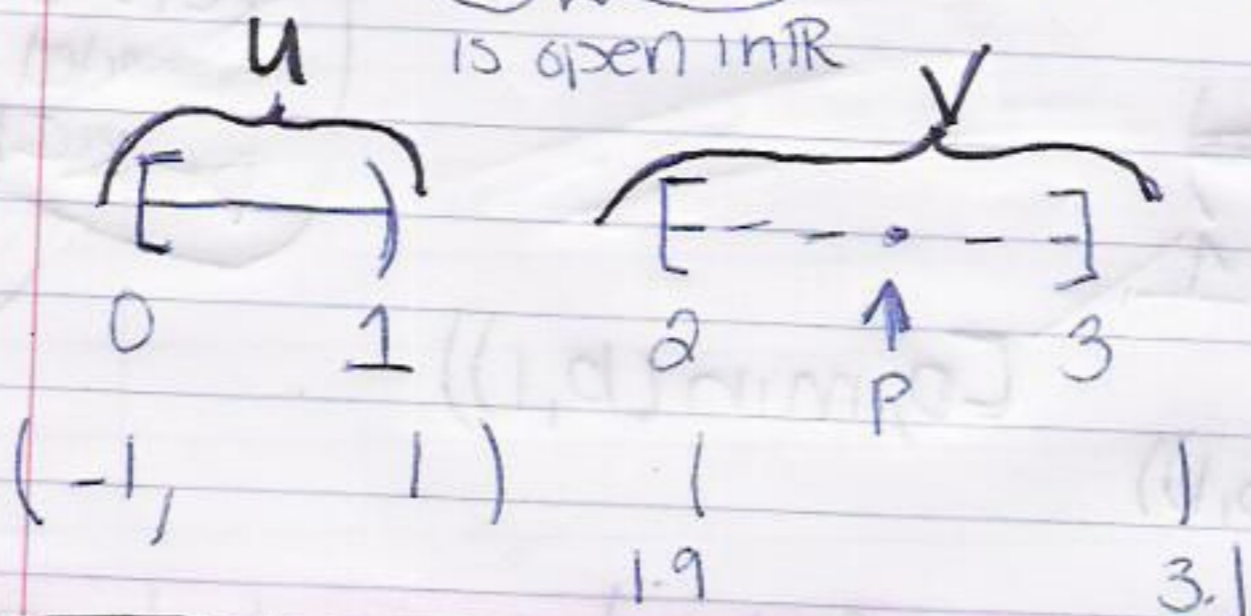 U is open in ℝ V
[ ) [ ]
0 1 2 3
P
(-1, 1) ( )
1.9 3.1